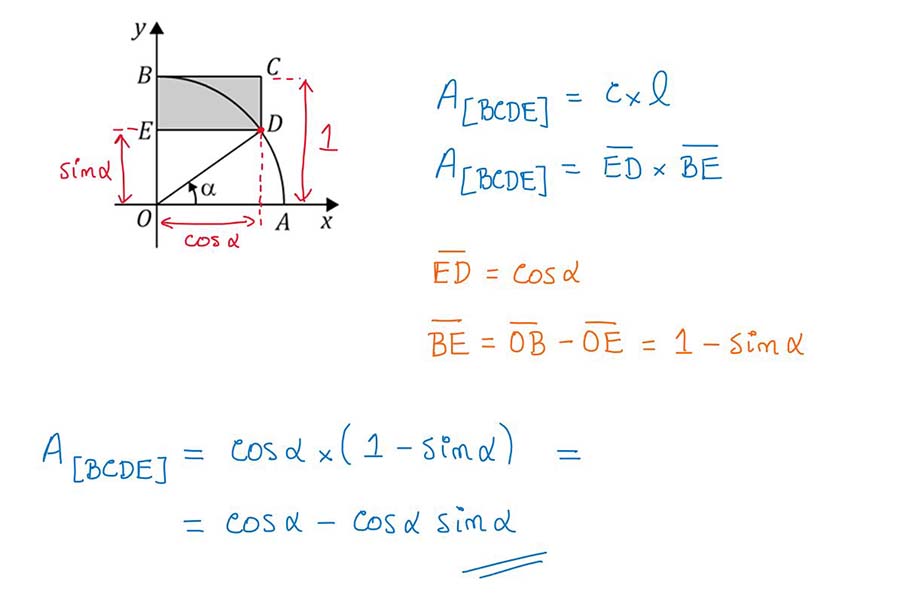 y
B C
E D
sinα 1
α
O A x
cosα
A[BCDE] = c × l
A[BCDE] = E̅D̅ × B̅E̅
E̅D̅ = cosα
B̅E̅ = O̅B̅ − O̅E̅ = 1 − sinα
A[BCDE] = cosα × (1 − sinα) =
= cosα − cosα sinα